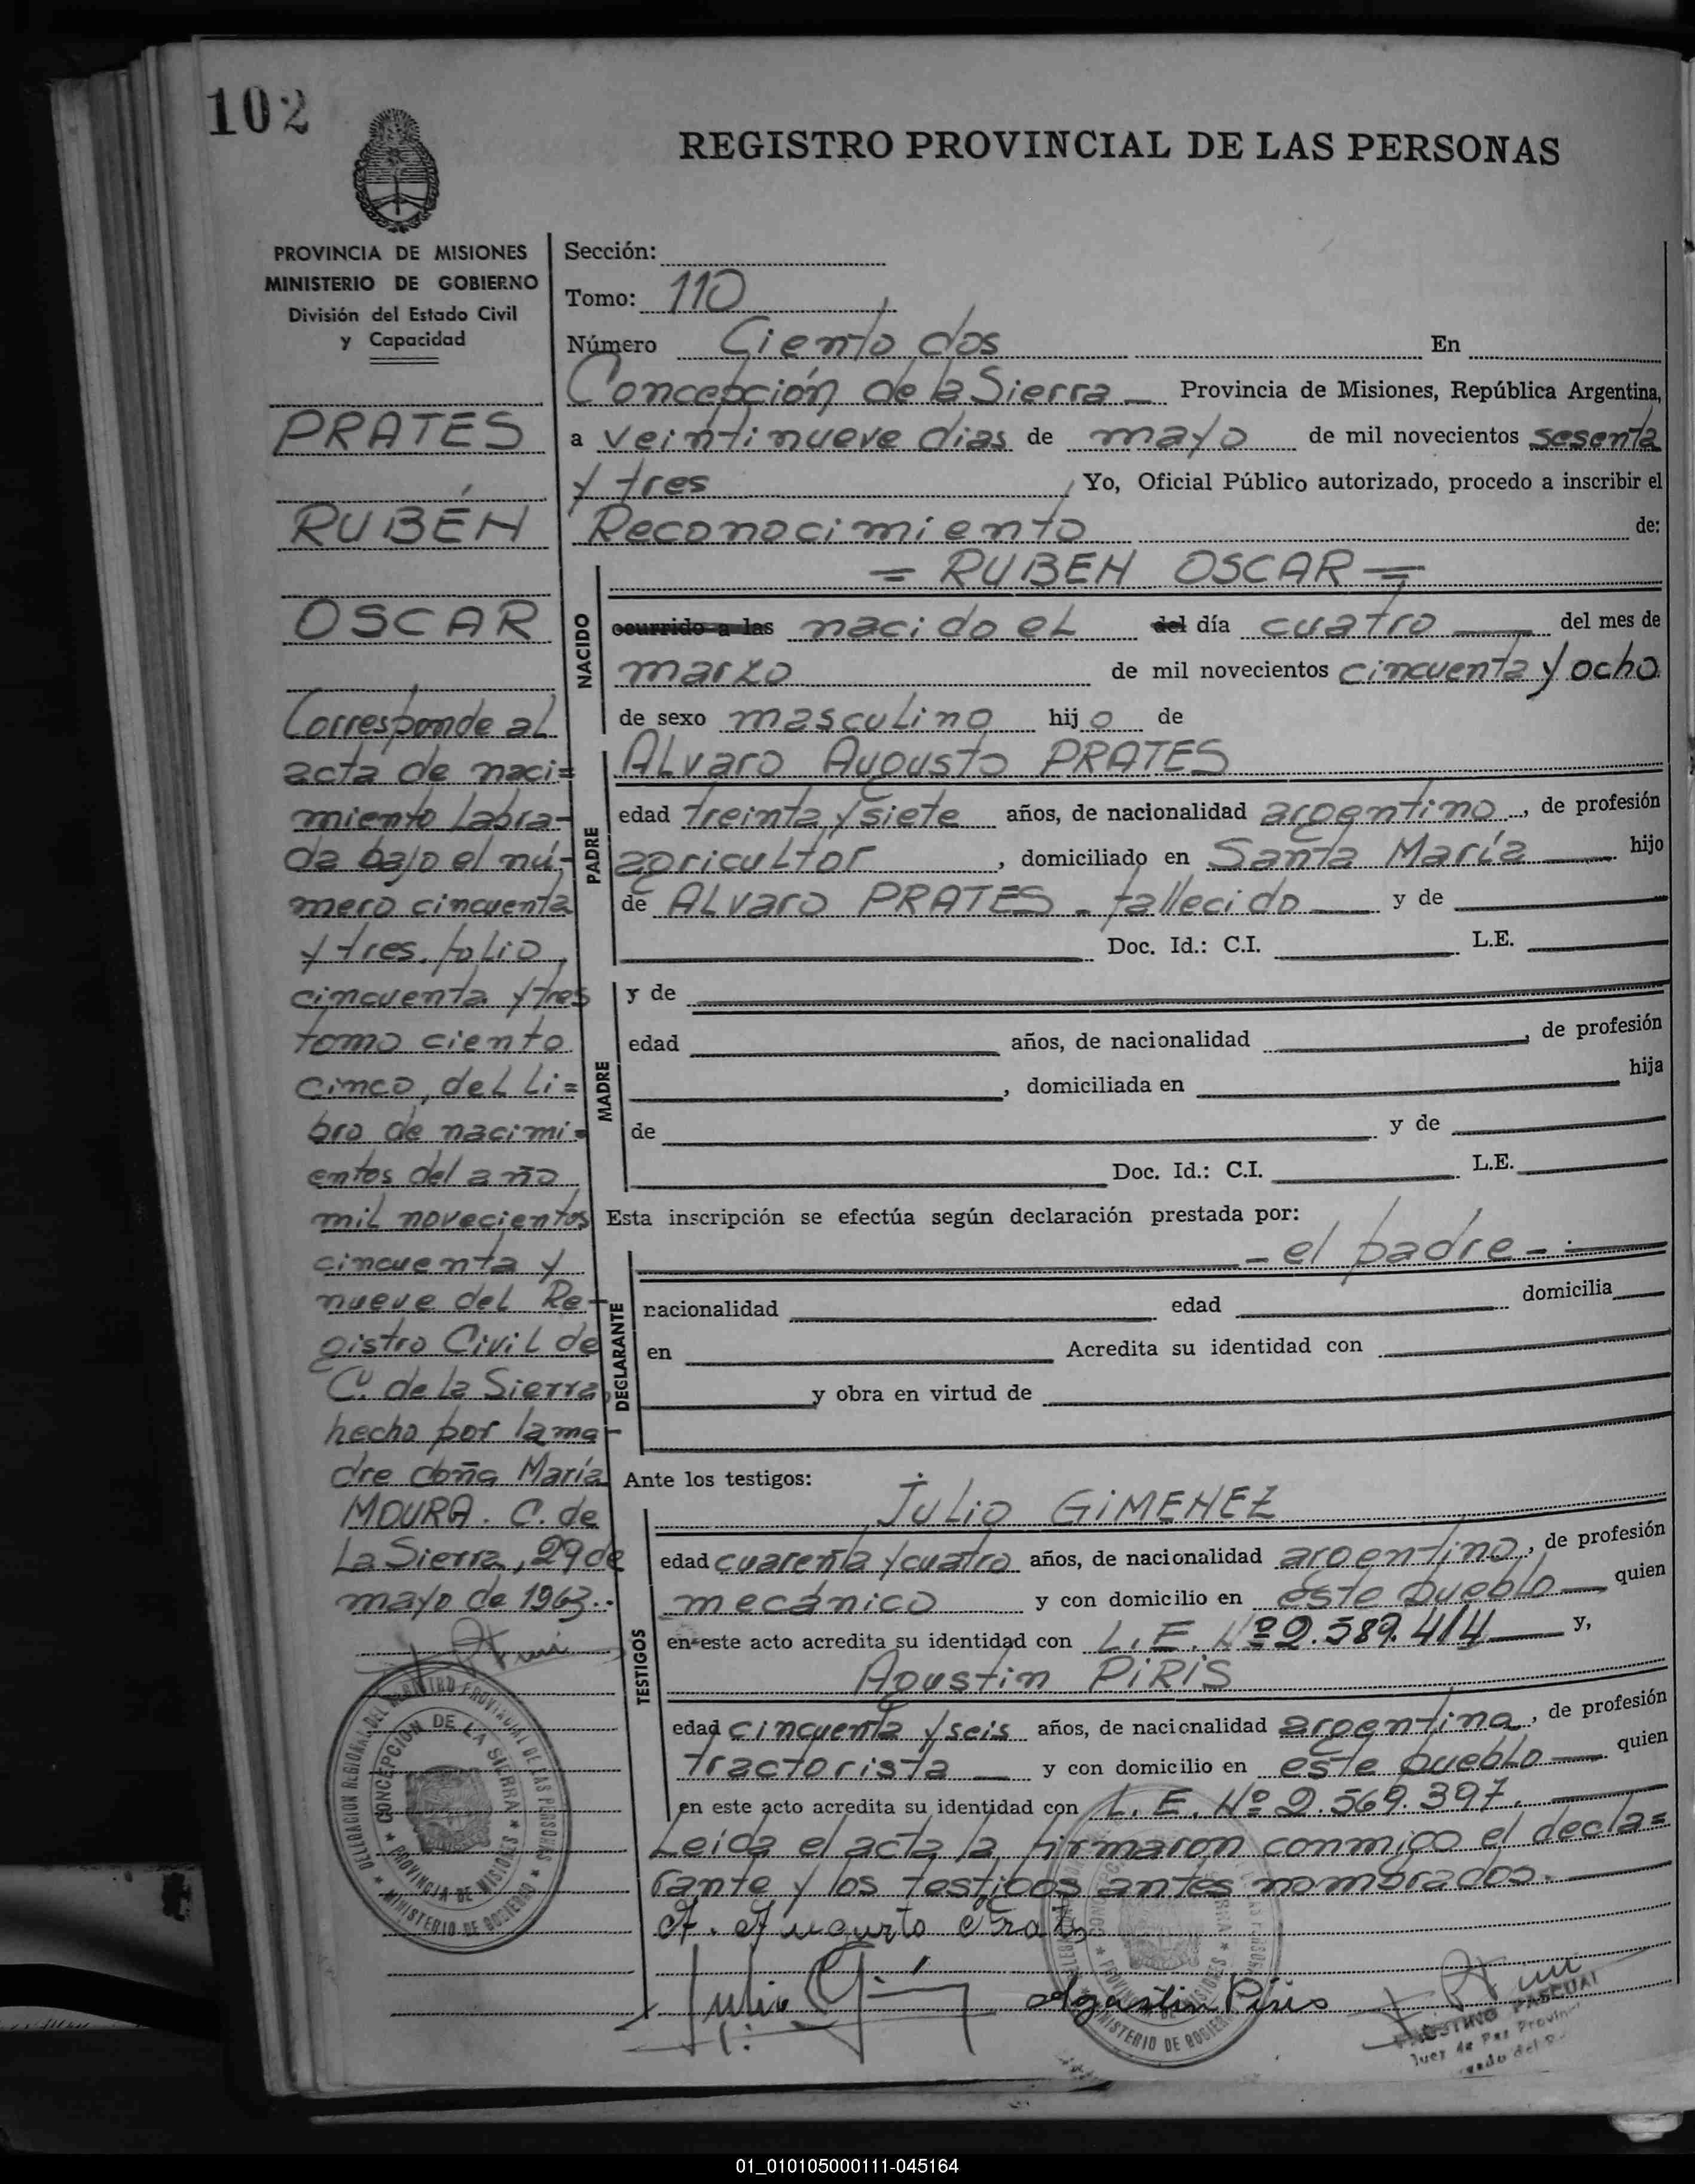 102
REGISTRO PROVINCIAL DE LAS PERSONAS
PROVINCIA DE MISIONES
MINISTERIO DE GOBIERNO
División del Estado Civil
y Capacidad
PRATES
RUBÉN
OSCAR
Corresponde al
acta de naci=
miento labra-
da bajo el nú-
mero cincuenta
y tres, folio
cincuenta y tres
tomo ciento
cinco, del Li=
bro de nacimi=
entos del año
mil novecientos
cincuenta y
nueve del Re-
gistro Civil de
C. de la Sierra,
hecho por la ma-
dre doña María
MOURA. C. de
La Sierra, 29 de
mayo de 1963.-
DELEGACION REGIONAL DEL REGISTRO PROVINCIAL DE LAS PERSONAS
CONCEPCION DE LA SIERRA
PROVINCIA DE MISIONES
MINISTERIO DE GOBIERNO
Sección:
Tomo: 110
Número Ciento dos En
Concepción de la Sierra — Provincia de Misiones, República Argentina,
a veintinueve dias de mayo de mil novecientos sesenta
y tres Yo, Oficial Público autorizado, procedo a inscribir el
Reconocimiento de:
= RUBEN OSCAR =
NACIDO
ocurrido a las nacido el del día cuatro — del mes de
marzo de mil novecientos cincuenta y ocho
de sexo masculino hijo de
PADRE
Alvaro Augusto PRATES
edad treinta y siete años, de nacionalidad argentino, de profesión
agricultor, domiciliado en Santa María — hijo
de Alvaro PRATES - fallecido — y de
Doc. Id.: C.I. L.E.
MADRE
y de
edad años, de nacionalidad , de profesión
, domiciliada en hija
de y de
Doc. Id.: C.I. L.E.
Esta inscripción se efectúa según declaración prestada por:
DECLARANTE
- el padre -.-
nacionalidad edad domicilia
en Acredita su identidad con
y obra en virtud de
Ante los testigos:
TESTIGOS
Julio GIMENEZ
edad cuarenta y cuatro años, de nacionalidad argentino, de profesión
mecánico y con domicilio en este pueblo — quien
en este acto acredita su identidad con L. E. Nº 2.589.414 — y,
Agustin PIRIS
edad cincuenta y seis años, de nacionalidad argentina, de profesión
tractorista — y con domicilio en este pueblo — quien
en este acto acredita su identidad con L. E. Nº 2.569.397. —
Leida el acta la firmaron conmigo el decla=
rante y los testigos antes nombrados. —
A. Augusto Prates
Julio
Agustin Piris
PASCUAL
Juez de Paz
01_010105000111-045164